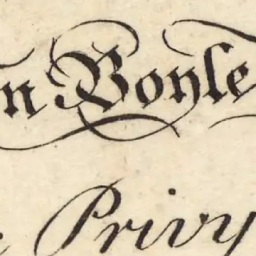 n Boyle
Privy